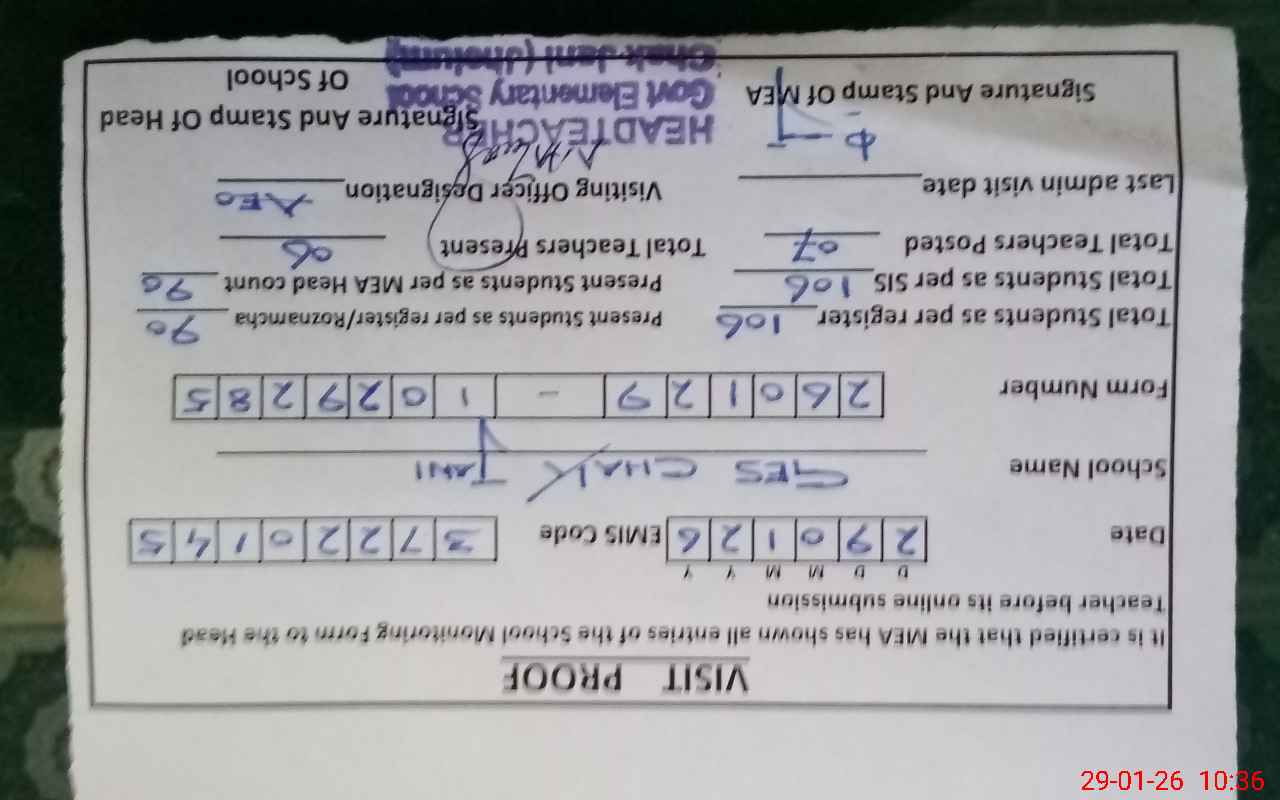 VISIT PROOF
It is certified that the MEA has shown all entries of the School Monitoring Form to the Head
Teacher before its online submission
D D M M Y Y
Date 2 9 0 1 2 6 EMIS Code 3 7 2 2 0 1 4 5
School Name GES CHAK JANI
Form Number 2 6 0 1 2 9 - 1 0 2 9 2 8 5
Total Students as per register 106 Present Students as per register/Roznamcha 90
Total Students as per SIS 106 Present Students as per MEA Head count 90
Total Teachers Posted 07 Total Teachers Present 06
Last admin visit date Visiting Officer Designation AEO
Signature And Stamp Of MEA Signature And Stamp Of Head
Of School
HEADTEACHER
Govt Elementary School
Chak Jani (Jhelum)
29-01-26 10:36